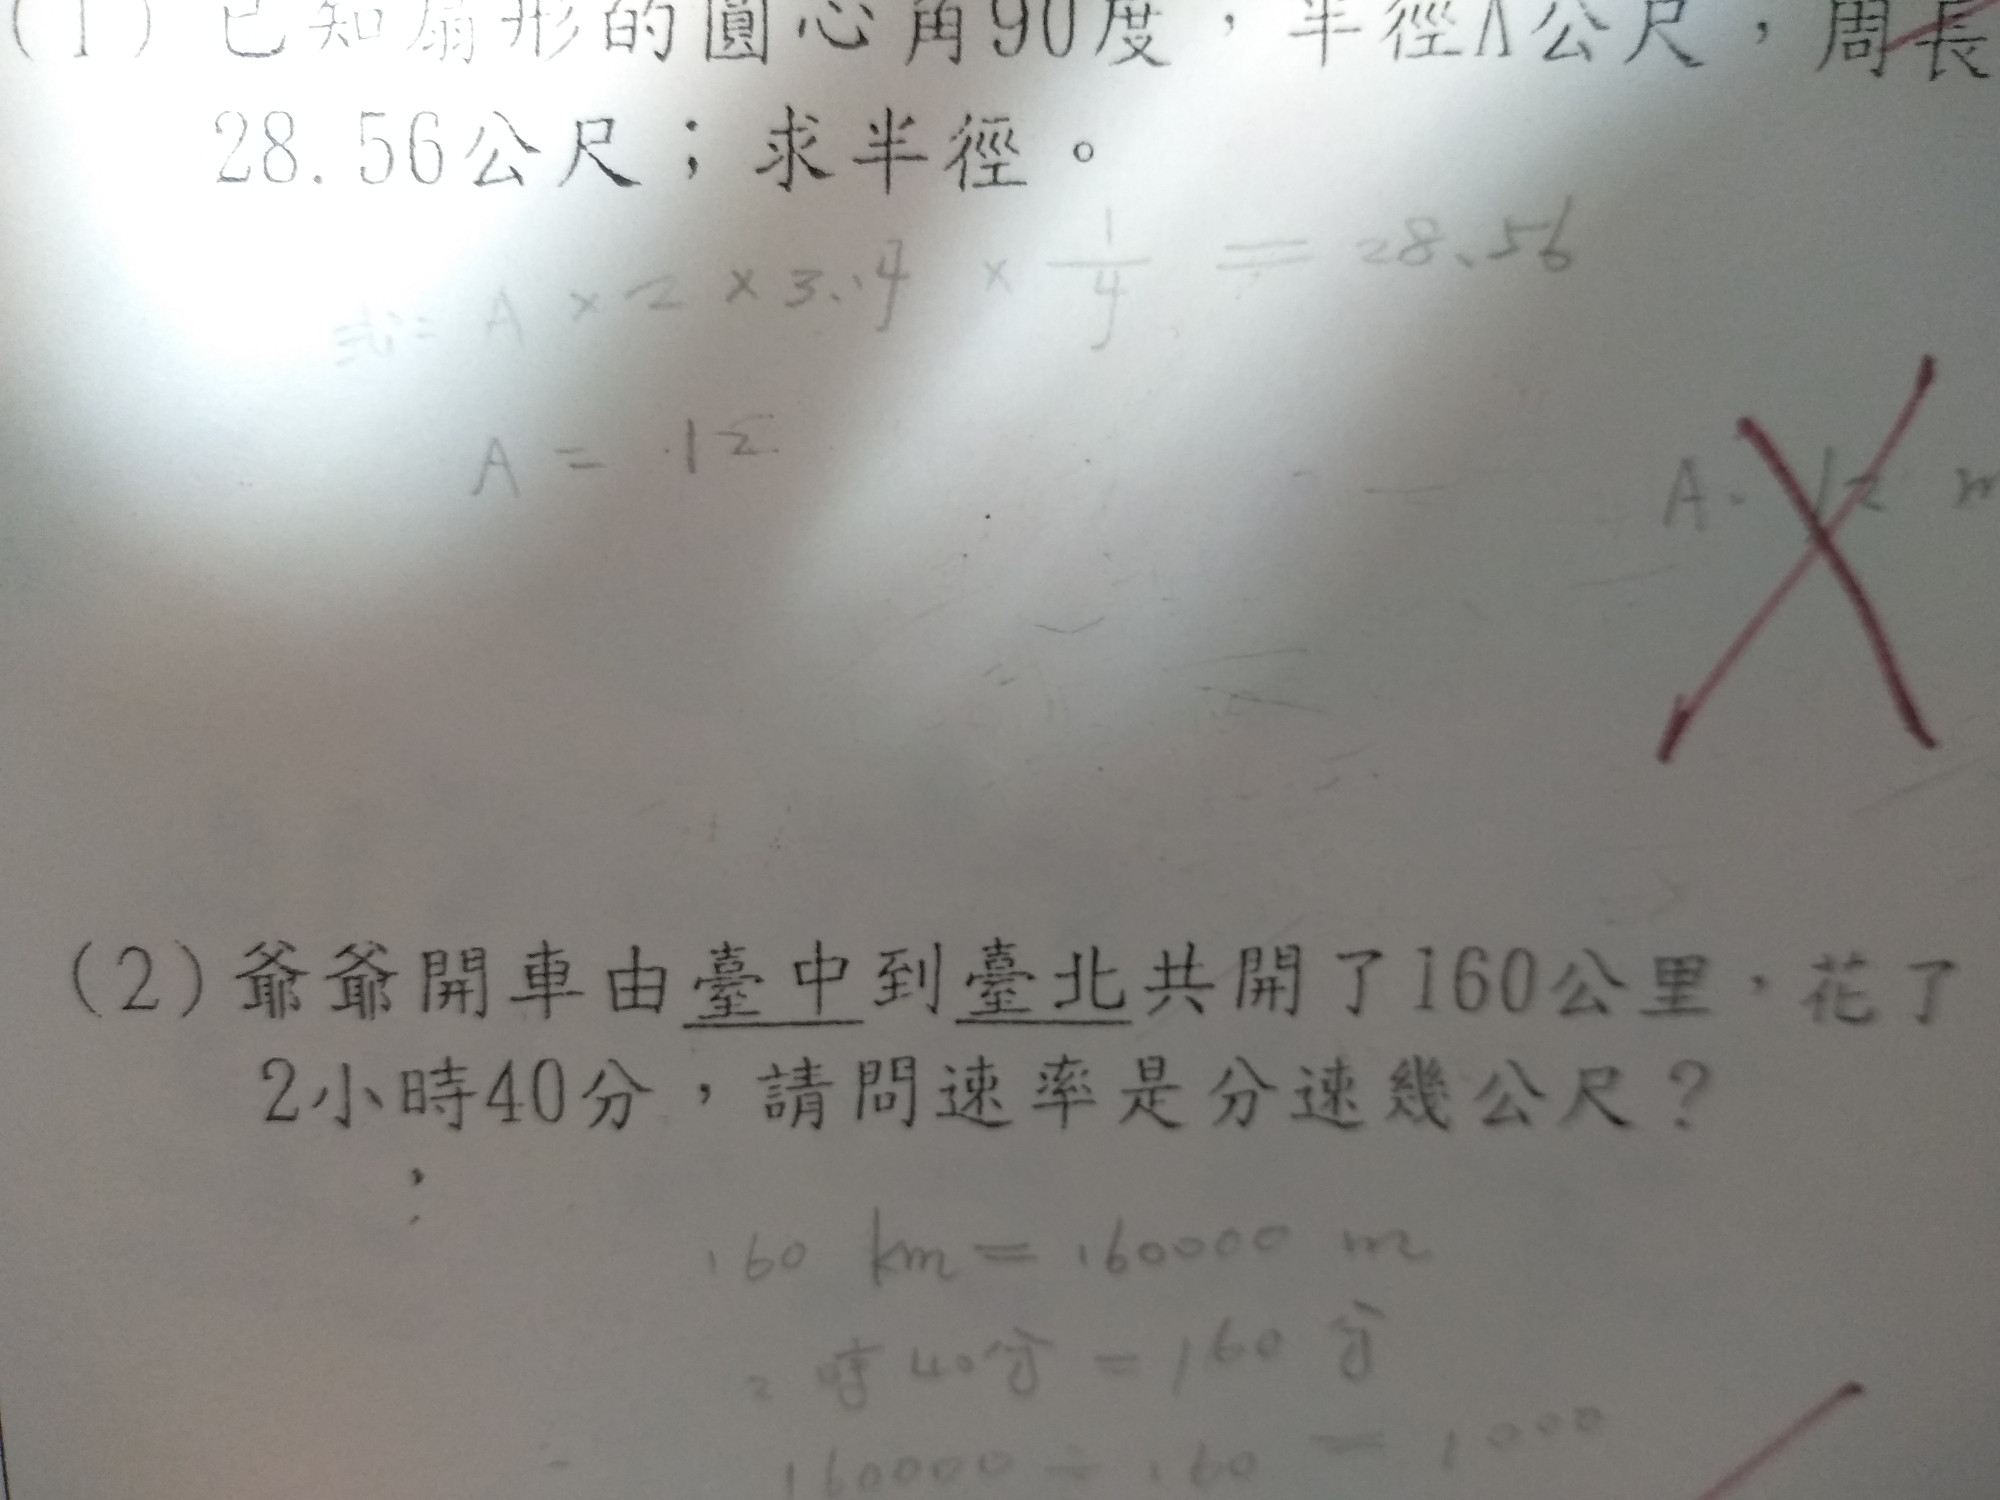 (1) 已知扇形的圓心角90度，半徑A公尺，周長
28.56公尺；求半徑。
式= A × 2 × 3.14 × 1/4 = 28.56
A = 12
A. 12 m
(2) 爺爺開車由臺中到臺北共開了160公里，花了
2小時40分，請問速率是分速幾公尺？
160 km = 160000 m
2 時 40分 = 160 分
160000 ÷ 160 = 1000